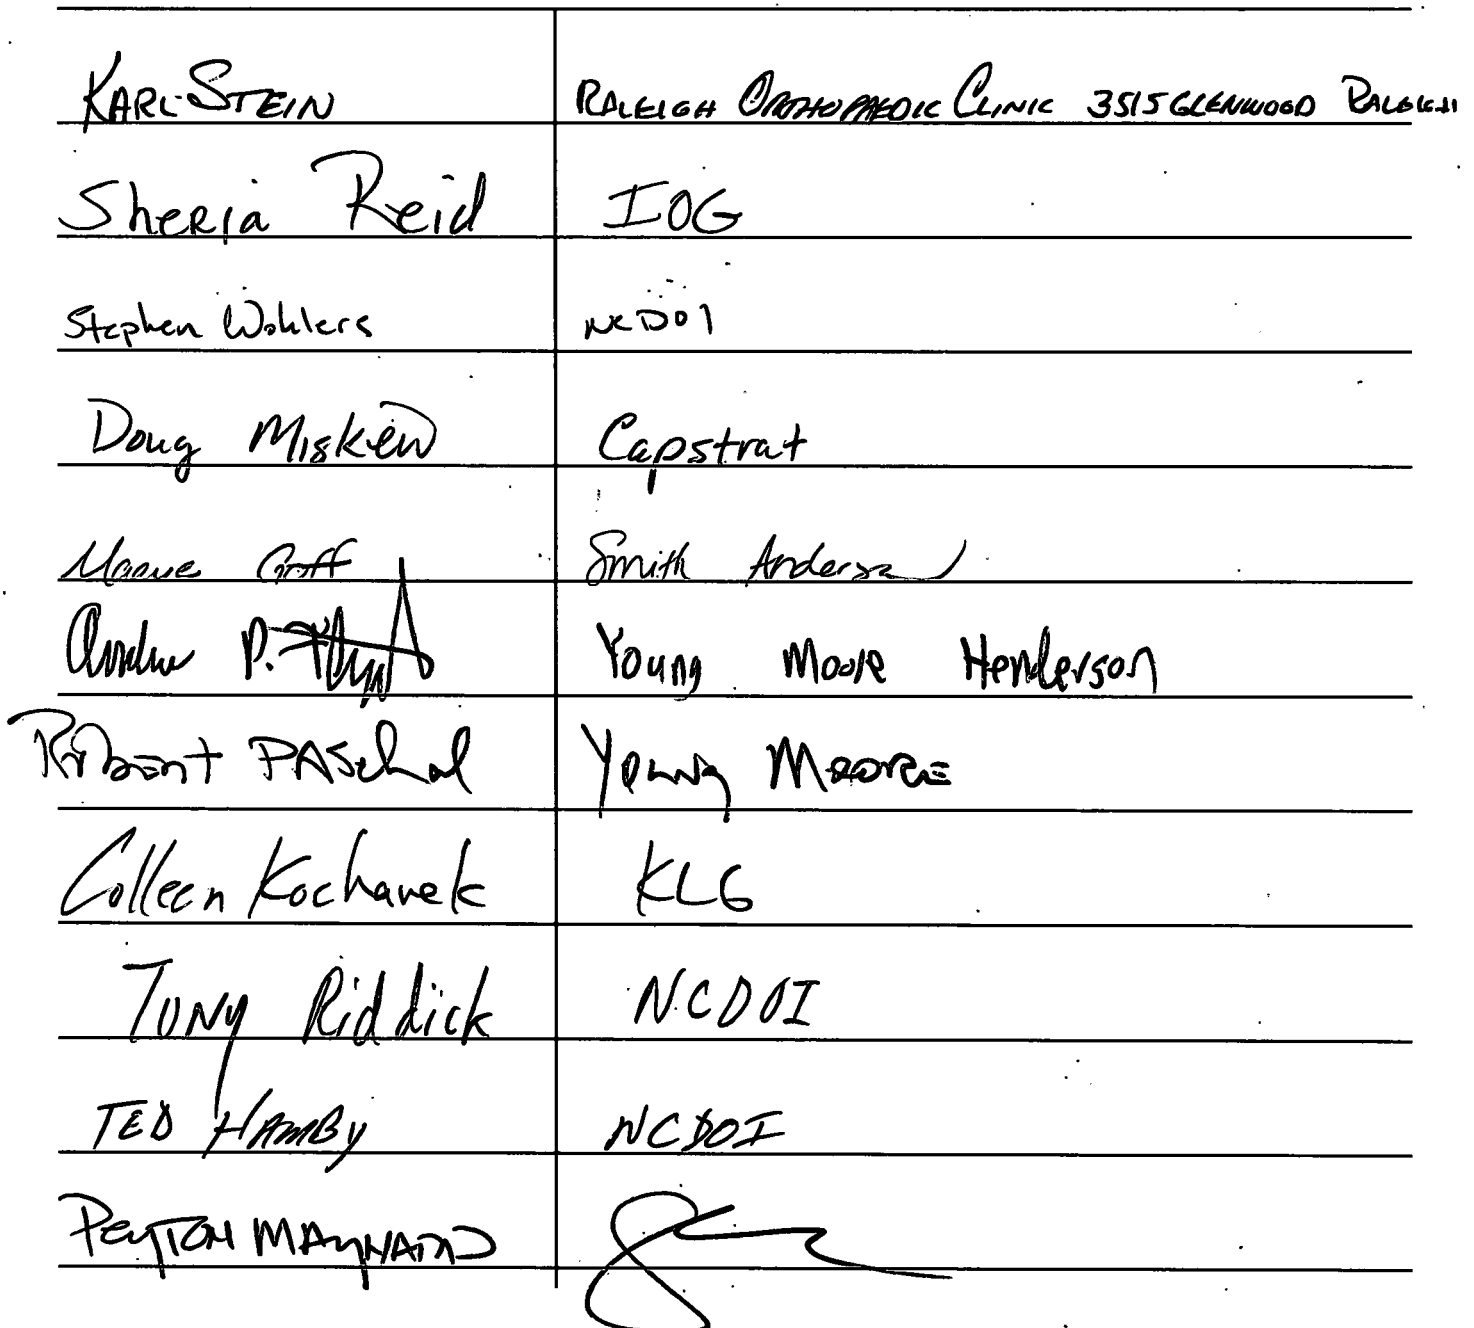 KARL STEIN RALEIGH ORTHOPAEDIC CLINIC 3515 GLENWOOD RALEIGH
Sheria Reid IOG
Stephen Wohlers NCDOI
Doug Miskew Capstrat
Goff Smith Anderson
Andrew P. Young Moore Henderson
Robert PASchal Young MOORE
Colleen Kochanek KLG
TONY Riddick NCDOI
TED HAMBy NCDOI
PEYTON MAYNARD